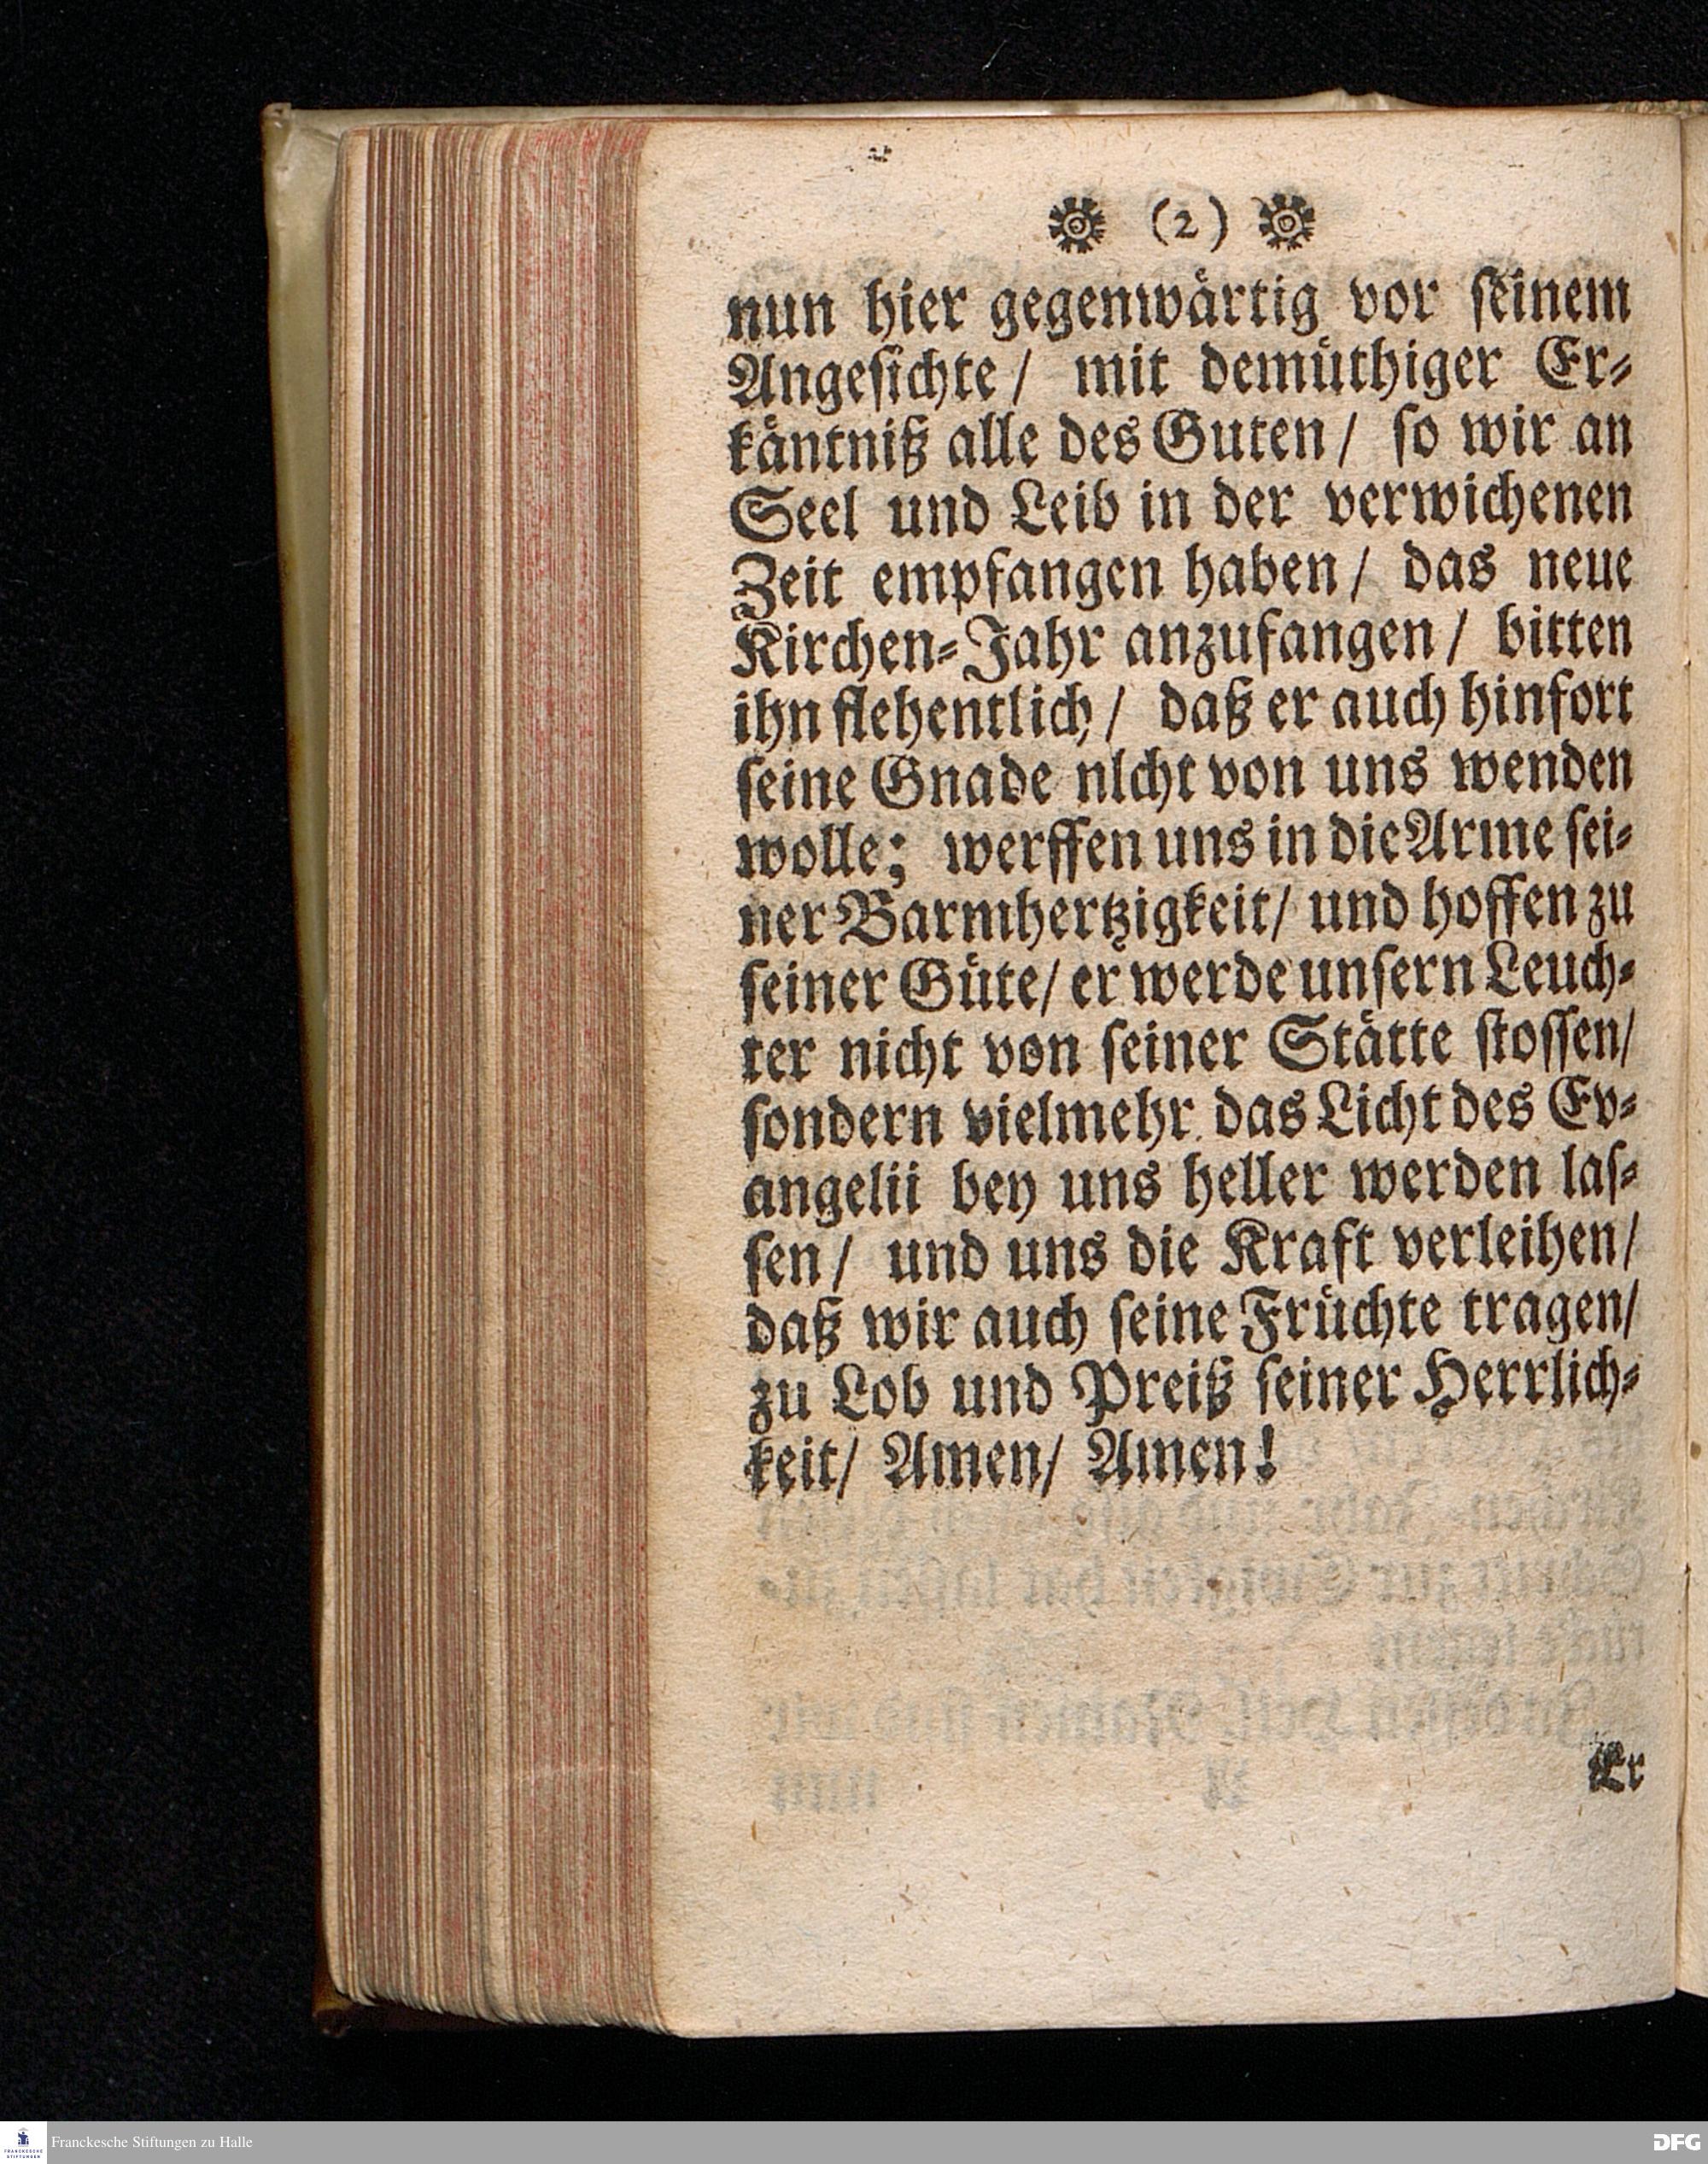 (2)
nun hier gegenwärtig vor ſeinem
Angeſichte/ mit demüthiger Er⸗
käntniß alle des Guten/ ſo wir an
Seel und Leib in der verwichenen
Zeit empfangen haben/ das neue
Kirchen⸗Jahr anzufangen/ bitten
ihn flehentlich/ daß er auch hinfort
ſeine Gnade nlcht von uns wenden
wolle; werffen uns in die Arme ſei⸗
ner Barmhertzigkeit/ und hoffen zu
ſeiner Güte/ er werde unſern Leuch⸗
ter nicht von ſeiner Stätte ſtoſſen/
ſondern vielmehr das Licht des Ev⸗
angelii bey uns heller werden laſ⸗
ſen/ und uns die Kraft verleihen/
daß wir auch ſeine Früchte tragen/
zu Lob und Preiß ſeiner Herrlich⸗
keit/ Amen/ Amen!
Er
FRANCKESCHE
STIFTUNGEN
Franckesche Stiftungen zu Halle
DFG